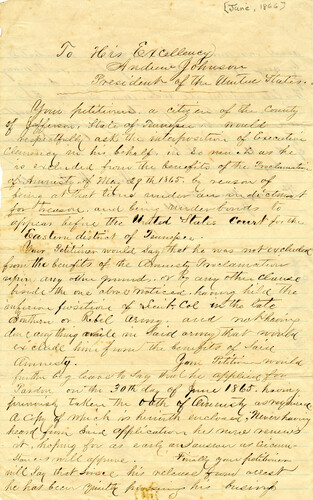 [June, 1866]
To His Excellency
Andrew Johnson
President of the United States.
Your petitioner, a citizen of the County
of Jefferson, State of Tennessee would
respectfully ask the interposition of Executive
Clemency in his behalf. In so much as he
is excluded from the benefits of the Proclamation
of Amnesty of May 29th 1865. by reason of
being at that time under an indictment
for treason, and under bond to
appear before the United States Court for the
Eastern district of Tennessee.
Your Petitioner would say that he was not excluded
from the benefits of the Amnesty Proclamation
upon any other grounds, or by any other clause
from the one above noticed, having held the
inferior position of Lieut. Col in the late
Southern or Rebel Army and not having
done anything while in Said army that would
exclude him from the benefits of Said
Amnesty. Your Petitioner would
further beg leave to Say that he applied for
Pardon on the 30th day of June 1865. having
previously taken the Oath of Amnesty as required
A Copy of which is herewith enclosed. Never having
heard from Said application, he now renews
it, hoping for as early an answer as Circum-
stances will approve. Finally your petitioner
will say that Since his release from arrest
he has been quietly pursuing his business